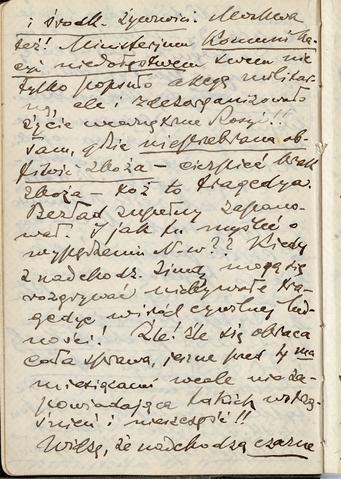 i środk. żywności. Moskwa
też! Ministerjum Komunika-
cyi niedołęstwem swem nie
tylko popsuło akcyę militar-
ną, ale i zdezorganizowało
życie wewnętrzne Rosyi!!
Tam, gdzie nieprzebrana ob-
fitość zboża – cierpieć brak
zboża – toż to tragedya.
Bezład zupełny zapano-
wał. I jak tu myśleć o
wypędzeniu N-w?? Kiedy
z nadchodz. Zimą mogą się
rozgrywać niebywałe tra-
gedye wśród cywilnej lud-
ności! Źle! Źle się obraca
cała sprawa, jeszcze przed
miesiącami wcale nie za-
powiadająca takich
i nieszczęść!!
Widzę, że nadchodzą czarne